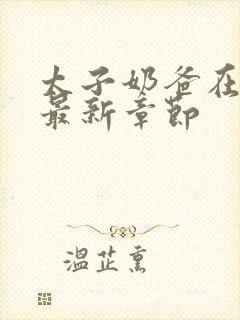 太子奶爸在
最新章節
溫芷熏